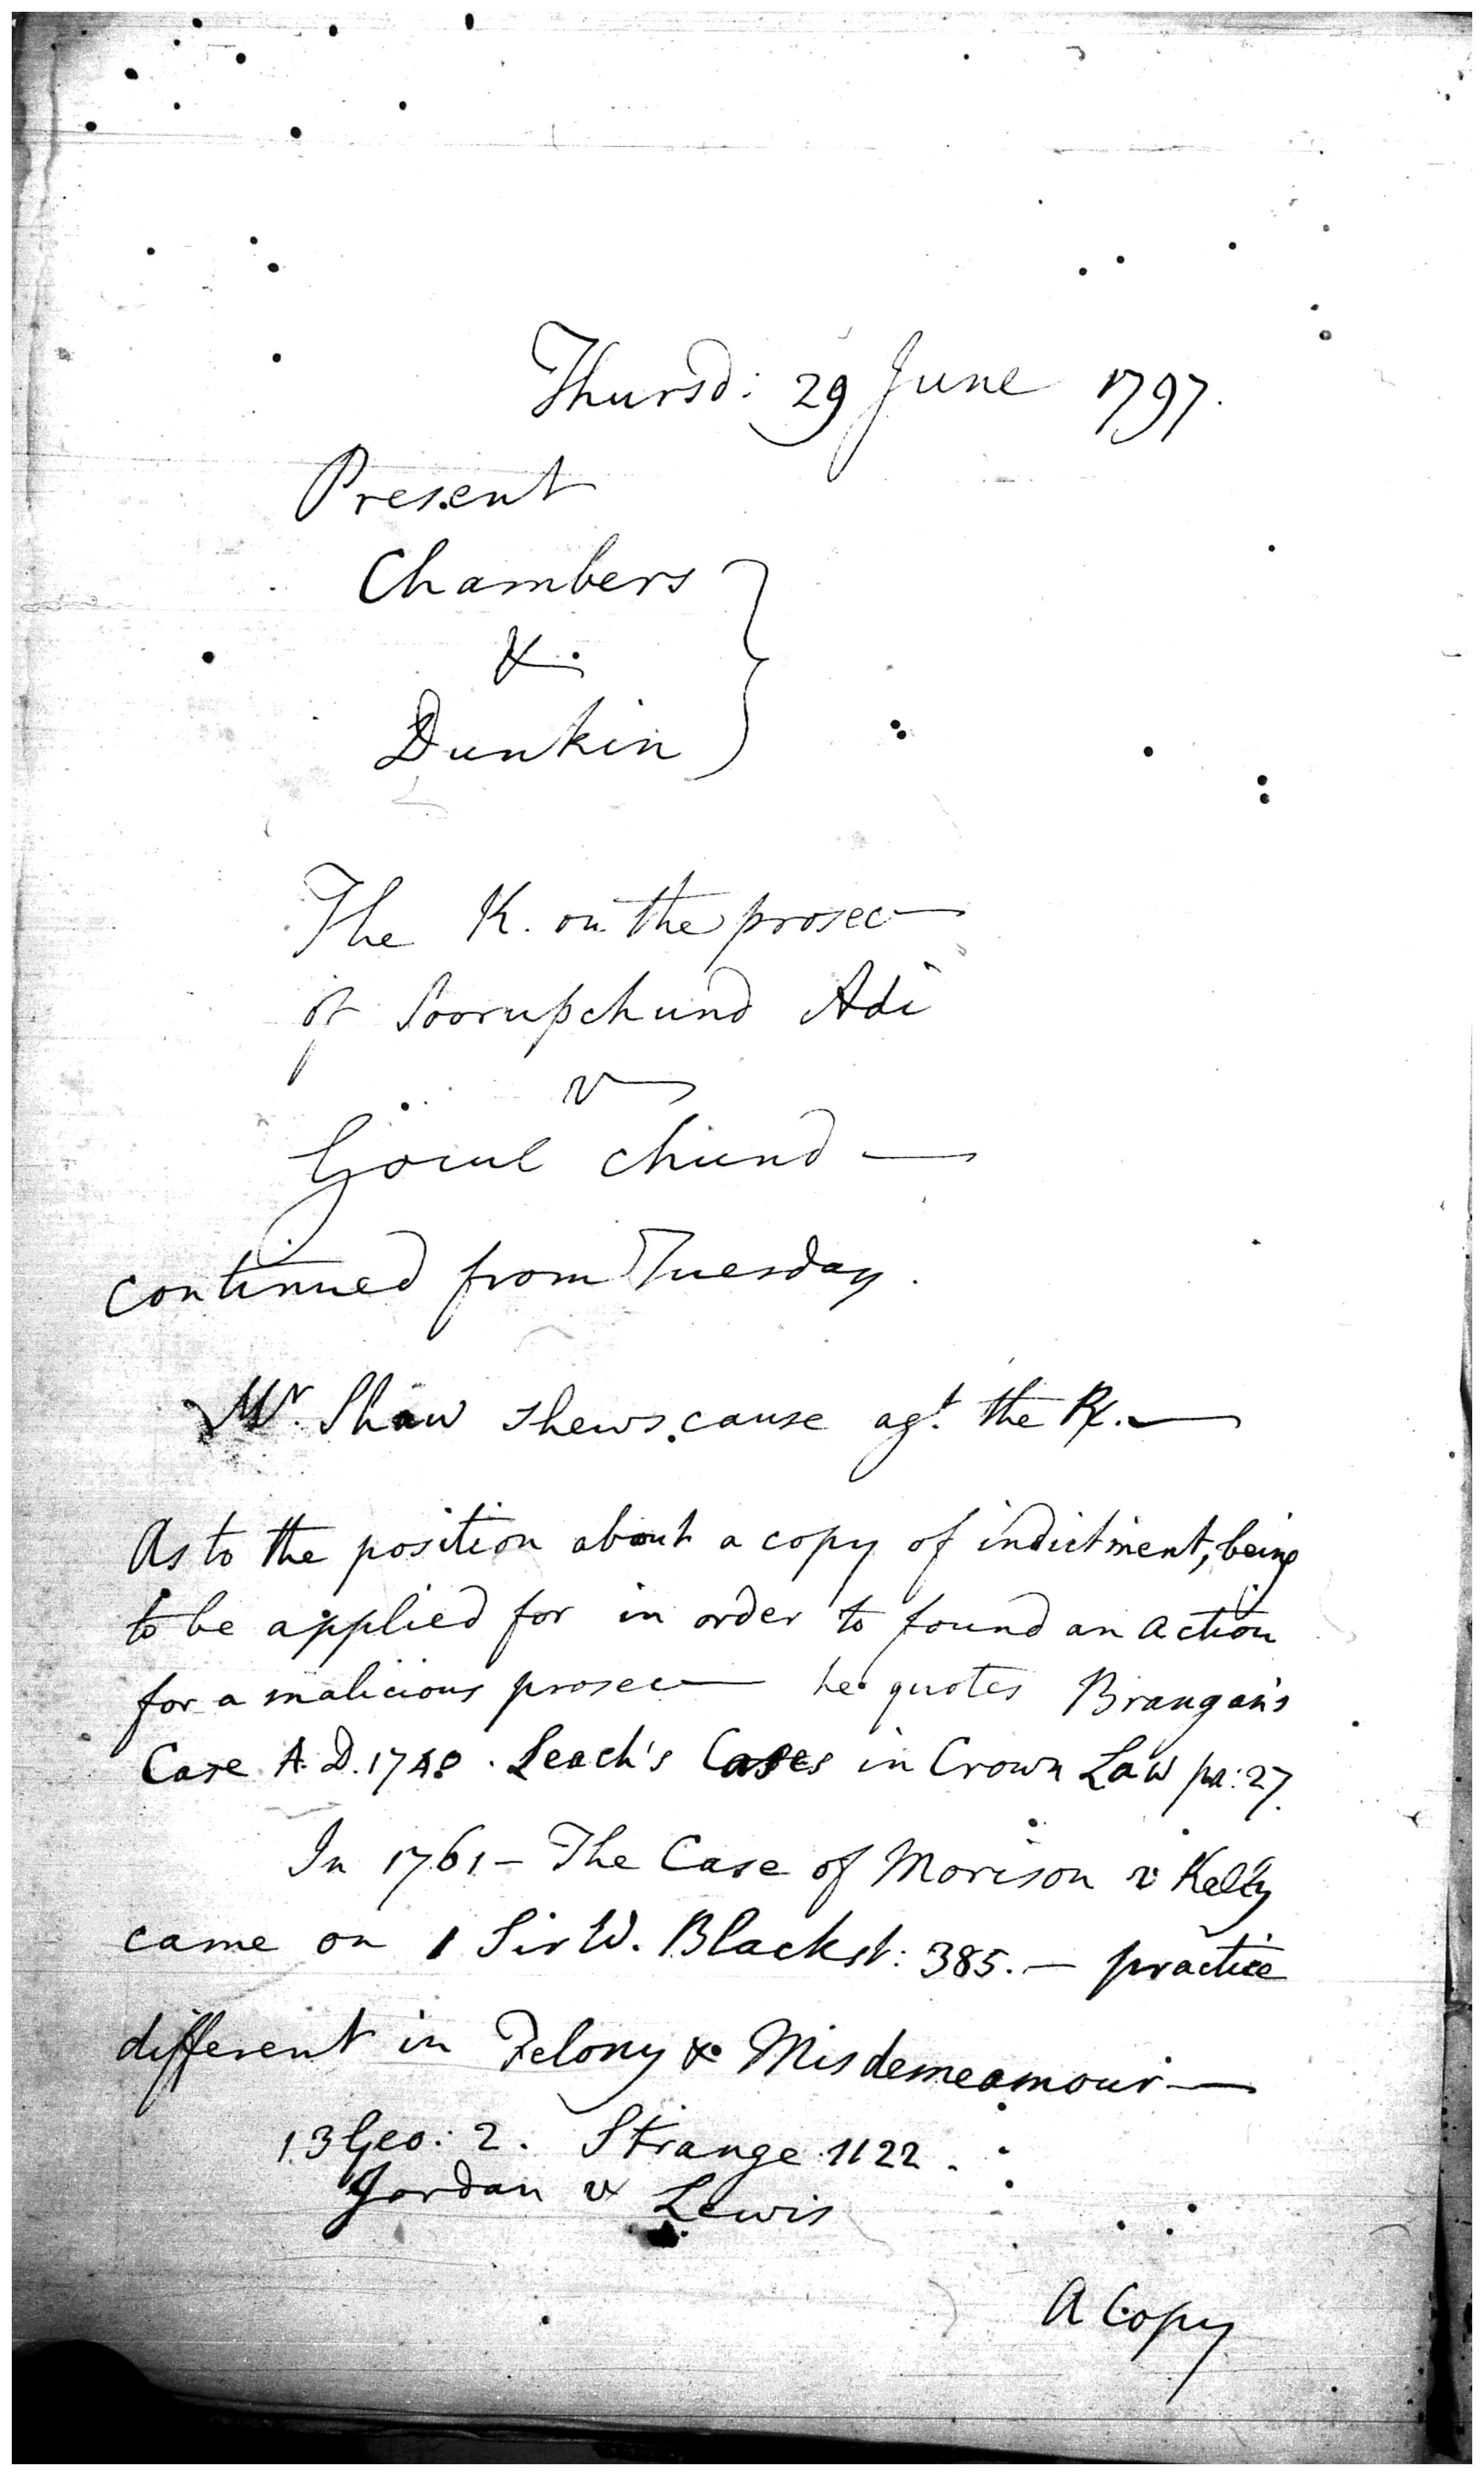 Thursd: 29 June 1797.
Present
Chambers
&
Dunkin
The K. on the prosec
of Soorupchund Adi
v
Gocul Chund —
continued from Tuesday.
Mr. Shaw shews cause agt. the R. —
As to the position about a copy of indictment, being
to be applied for in order to found an action
for a malicious prosec — he quotes Brangan's
Case A.D. 1742. Leach's Cases in Crown Law pa: 27.
In 1761 – The Case of Morison v Kelly
came on 1 Sir W. Blackst: 385. — practice
different in Felony & Misdemeamour —
13 Geo: 2. Strange 1122.
Jordan v Lewis
A Copy